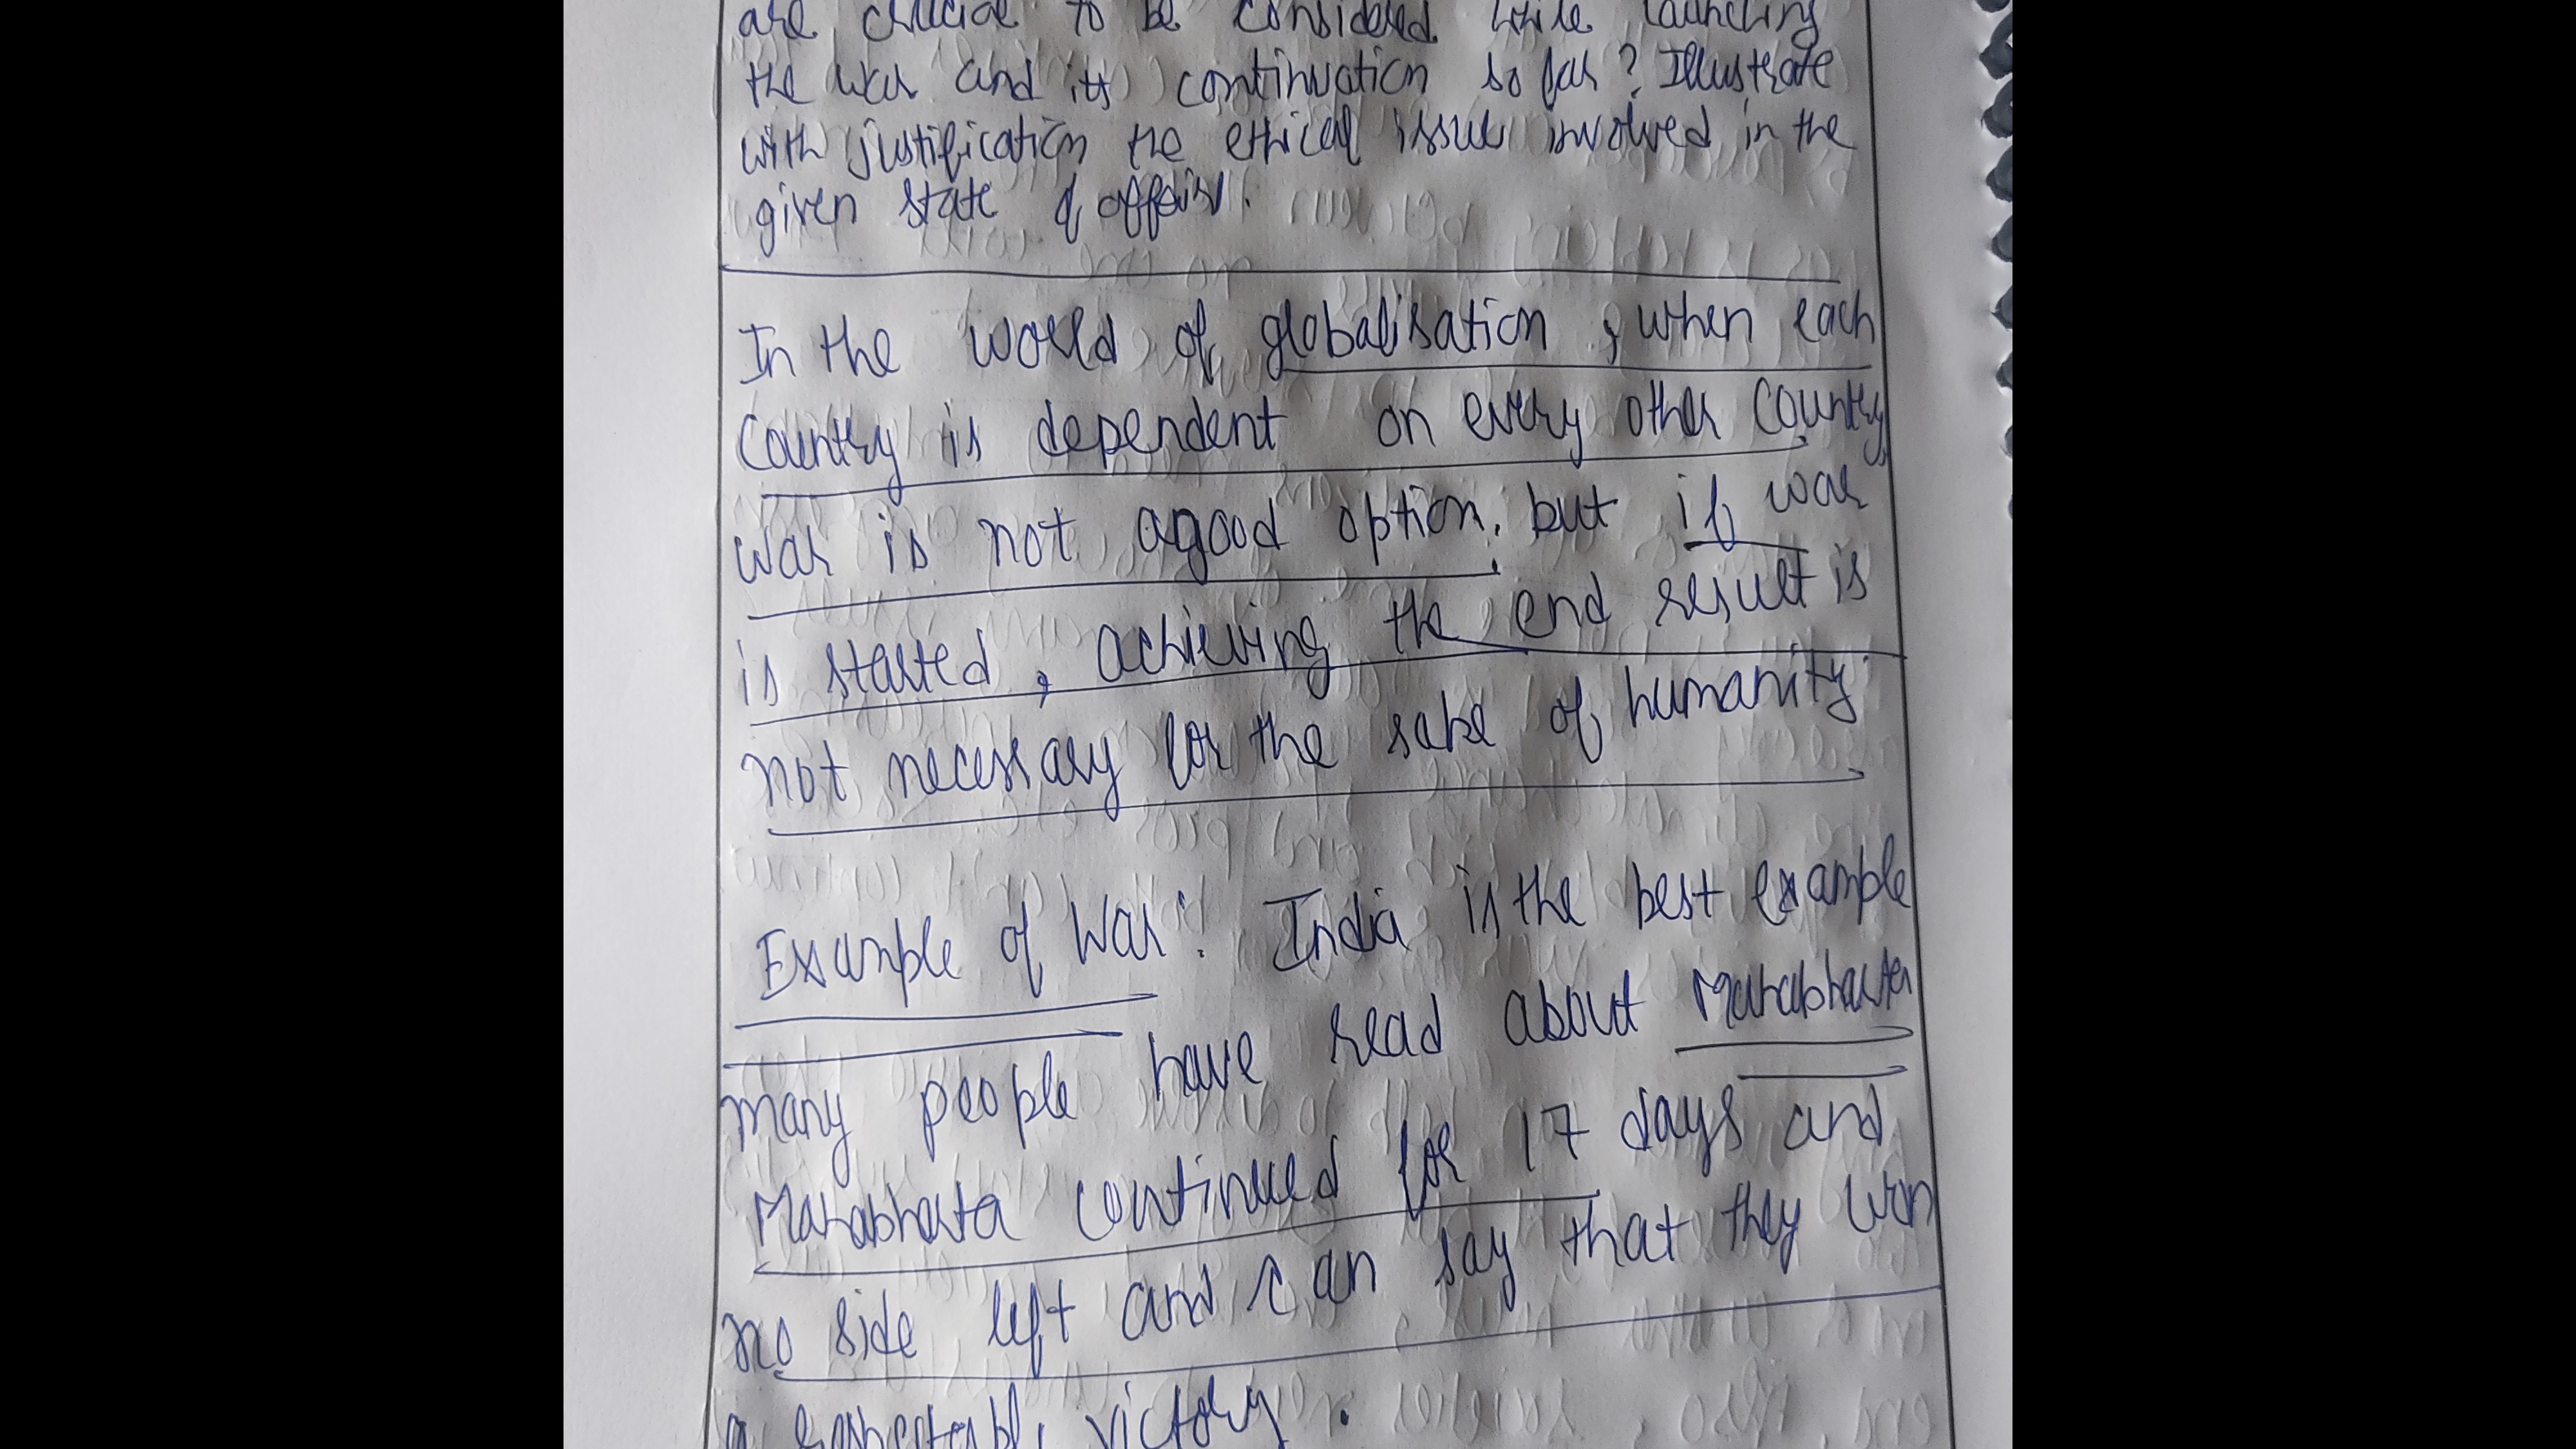 are crucial to be considered while launching
the war and its continuation so far? Illustrate
with justification the ethical issues involved in the
given state of affairs.
In the world of globalisation, when each
Country is dependent on every other Country
War is not a good option, but if war
is started, achieving the end result is
not necessary for the sake of humanity.
Example of War: India is the best example
many people have read about Mahabharta
Mahabharta continued for 17 days and
no side left and can say that they won
a respectable victory.